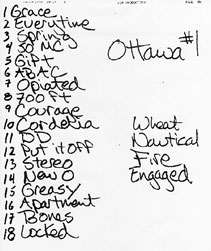 1 Grace
2 Everytime
3 Spring
4 30 MC
5 Gift
6 ABAC
7 Opiated
8 700 ft
9 Courage
10 Cordelia
11 PD
12 Put it off
13 Stereo
14 New O
15 Greasy
16 Apartment
17 Bones
18 Locked
Ottawa #1
Wheat
Nautical
Fire
Engaged